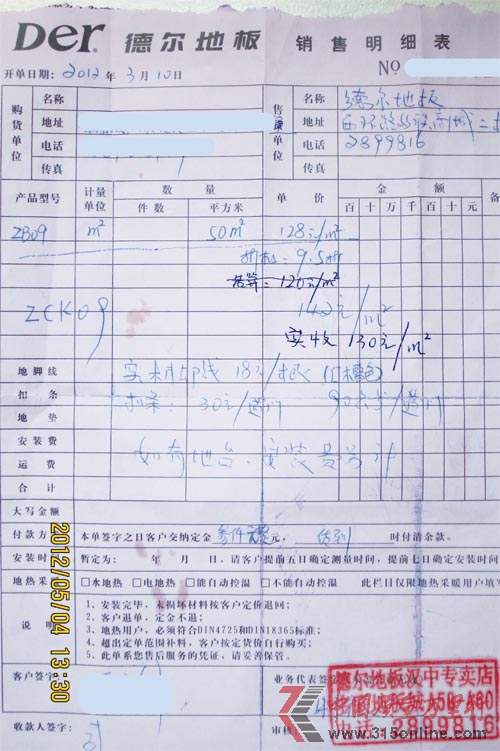 Der 德尔地板 销售明细表
开单日期：2012 年 3 月 10 日 NO
购货单位 名称 售货单位 名称 德尔地板
地址 地址
电话 电话 2899816
传真 传真
产品型号 计量单位 数量 单价 金额 备
件数 平方米 百 十 万 千 百 十 元
ZB09 m² 50m² 128元/m²
折扣：9.5折
结算：120元/m²
ZCK09 142元/m²
实收 130元/m²
地脚线 实木脚线 18元/根 (红檀色)
扣条 扣条：30元/道门 90公分/道门
地垫
安装费 如有地台，安装费另计
运费
合计
大写金额
付款方 本单签字之日客户交纳定金 元， 货到 时付清余款。
安装时 暂定为： 年 月 日，请客户提前五日确定测量时间，提前七日确定安装时
地热采 □水地热 □电地热 □能自动控温 □不能自动控温 此栏目仅限地热采暖用户填写
说明 1、安装完毕，未损坏材料按客户定价退回；
2、客户退单，定金不退；
3、地热用户，必须符合DIN4725和DIN18365标准；
4、超出定单范围补料，客户按定货价自行购买；
5、此单系您售后服务的凭证，请妥善保管。
客户签字： 业务代表签字
收款人签字： 审核：
德尔地板汉中专卖店
电话：2899816
www.315online.com
2012/05/04 13:30